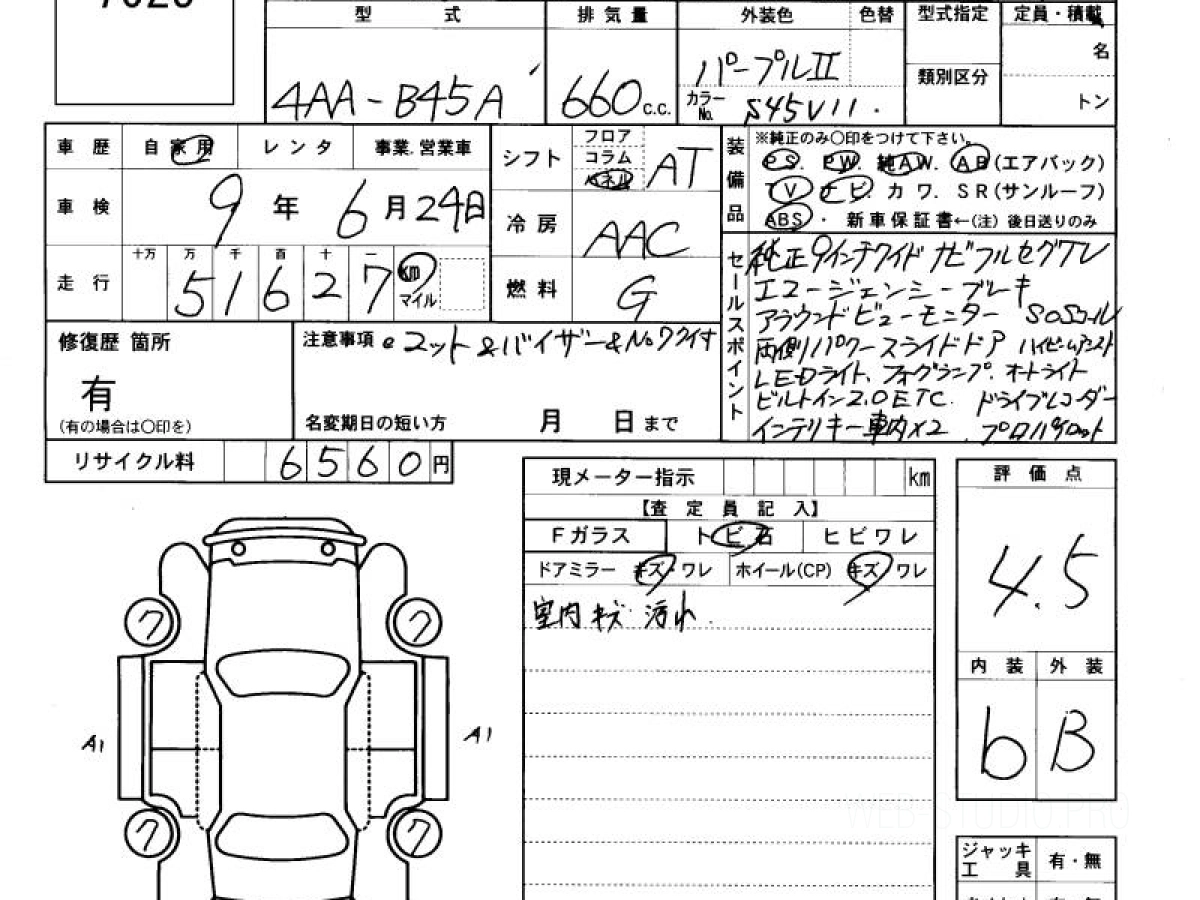 型 式
排 気 量
外装色
色替
型式指定
定員・積載
名
類別区分
トン
4AA-B45A
660 c.c.
パープルⅡ
カラーNo. S45V11.
車 歴
自家用
レ ン タ
事業.営業車
車 検
9 年 6 月 24日
走 行
十万 万 千 百 十 一
5 1 6 2 7
km
マイル
シフト
フロア
コラム
パネル
AT
冷 房
AAC
燃 料
G
装備品
※純正のみ〇印をつけて下さい。
PS. PW. 純AW. AB(エアバック)
TV ナビ. カ ワ. SR(サンルーフ)
ABS ・ 新車保証書←(注) 後日送りのみ
セールスポイント
純正9インチワイド ナビフルセグTV
エマージェンシーブレーキ
アラウンドビューモニター SOSコール
両側パワースライドドア ハイビームアシスト
LEDライト、フォグランプ、オートライト
ビルトイン2.0ETC. ドライブレコーダー
インテリキー車内×2 プロパイロット
修復歴 箇所
有
(有の場合は〇印を)
注意事項
マット&バイザー&No
名変期日の短い方 月 日まで
リサイクル料 6 5 6 0 円
現メーター指示 km
【査 定 員 記 入】
Fガラス
トビ石
ヒビワレ
ドアミラー キズ・ワレ
ホイール(CP) キズ ワレ
室内キズ 汚れ
評 価 点
4.5
内 装 外 装
b B
ワ ワ
A1 A1
ワ ワ
ジャッキ
工 具
有・無
WEB-STUDIO.PRO